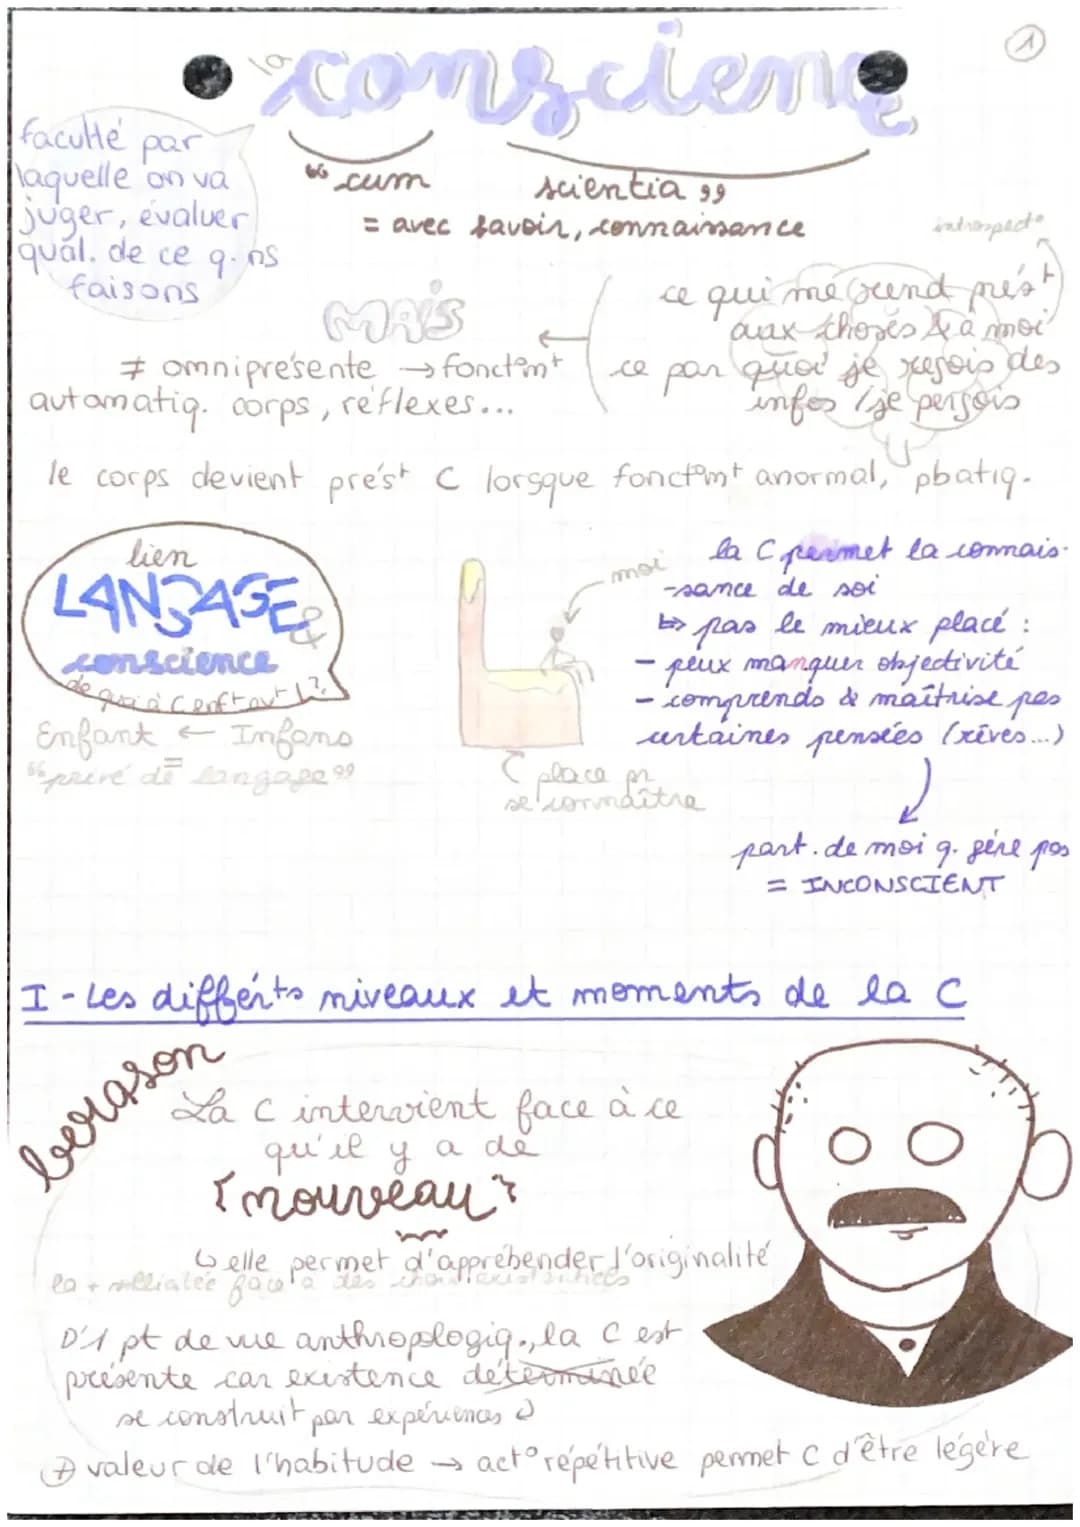 1
la conscience
faculté par
laquelle on va
juger, évaluer
qual. de ce q. ns
faisons
"cum scientia"
= avec savoir, connaissance
introspect°
ce qui me rend prést
aux choses & à moi
ce par quoi je reçois des
infos / je perçois
MAIS
≠ omniprésente → fonct°mt
automatiq. corps, réflexes...
le corps devient prést C lorsque fonct°mt anormal, pbatiq.
lien
LANGAGE &
conscience
Enfant ← Infans
= "privé de langage"
moi
place pr
se connaître
la C permet la connais-
-sance de soi
↳ pas le mieux placé :
- peux manquer objectivité
- comprends & maîtrise pas
certaines pensées (rêves...)
part. de moi q. gère pas
= INCONSCIENT
I - Les différts niveaux et moments de la C
bergson
La C intervient face à ce
qu'il y a de
nouveau
↳ elle permet d'appréhender l'originalité
la + face à des choix existentiels
D'1 pt de vue anthropologiq., la C est
présente car existence déterminée
se construit par expériences
+ valeur de l'habitude → act° répétitive permet C d'être légère